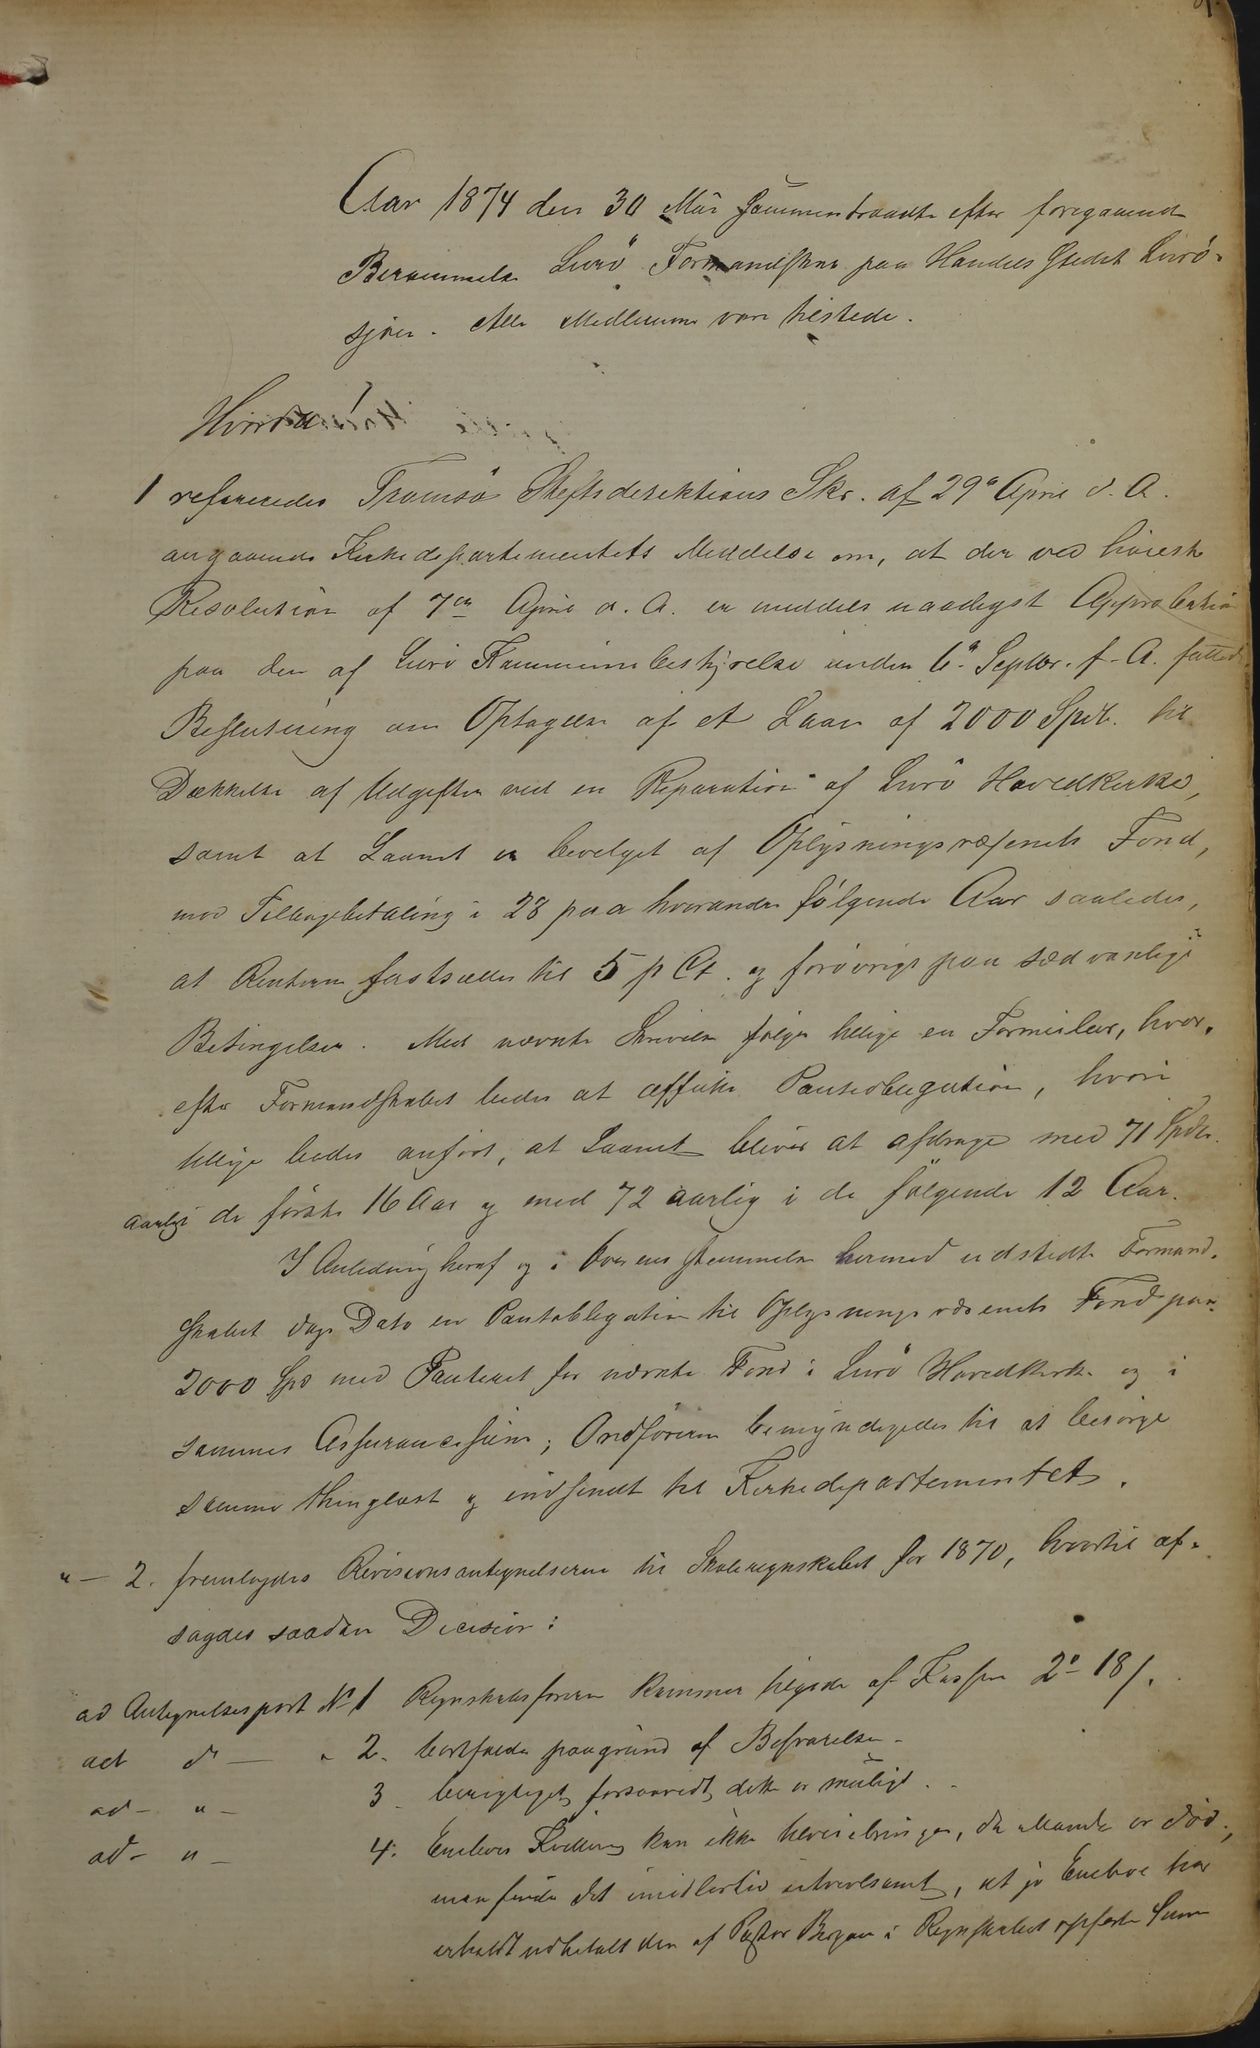 Aar 1874 den 30 Mai sammentraadte efter foregaaende
Berammelse Lurö Formandskab paa Handels Stedet Lurö-
sjöen. Alle Medlemme vare tilstede.
Hvorda!
1 refereredes Tromsö Stiftsdirektions Skr. af 29de April d. A.
angaaende Kirkedepartementets Meddelse om, at der ved höieste
Resolution af 7en April d. A. er meddelt naadigst Approbation
paa den af Lurö Kommunebestyrelse under 6te Septbr. f. A. fattede
Beslutning om Optagelse af et Laan af 2000 Spd. til
Dækkelse af Udgifter ved en Reparation af Lurö Hovedkirke,
samt at Laanet er bevilget af Oplysningsvæsenets Fond,
mod Tilbagebetaling i 28 paa hverandre fölgende Aar saaledes,
at Renterne fastsættes til 5 p Ct. og forövrigt paa sædvanlige
Betingelser. Med nævnte Skrivelse fölger tillige en Formular, hvor-
efter Formandskabet bedes at udstede Panteobligation, hvori
tillige bedes anfört, at Laanet bliver at afdrage med 71 Spdlr.
aarlig i de förste 16 Aar og med 72 aarlig i de fölgende 12 Aar.
I Anledning heraf og i Overensstemmelse hermed udstedte Formand-
skabet dags Dato en Pantobligation til Oplysningsvæsenets Fond paa
2000 Spd med Panteret for nævnte Fond i Lurö Hovedkirke og i
sammes Assurancesum; Ordföreren bemyndigedes til at besörge
samme thinglæst og indsendt til Kirkedepartementet.
" - 2. fremlagdes Revisionsantegnelserne til Skoleregnskabet for 1870, hvortil af-
sagdes saadan Decision:
ad Antegnelsespost No 1 Regnskabsföreren kommer tilgode af Kassen 2 - 18 s.
ad do - " 2. bortfalder paagrund af Besvarelsen.
ad - " - 3. berigtiget, forsaavidt dette er muligt.
ad - " - 4. Eneboes Kvittering kan ikke tilveiebringes, da Manden er död;
man finder det imidlertid utvivlsomt, at jo Eneboe har
erholdt udbetalt den af Pastor Bergan i Regnskabet opförte Sum